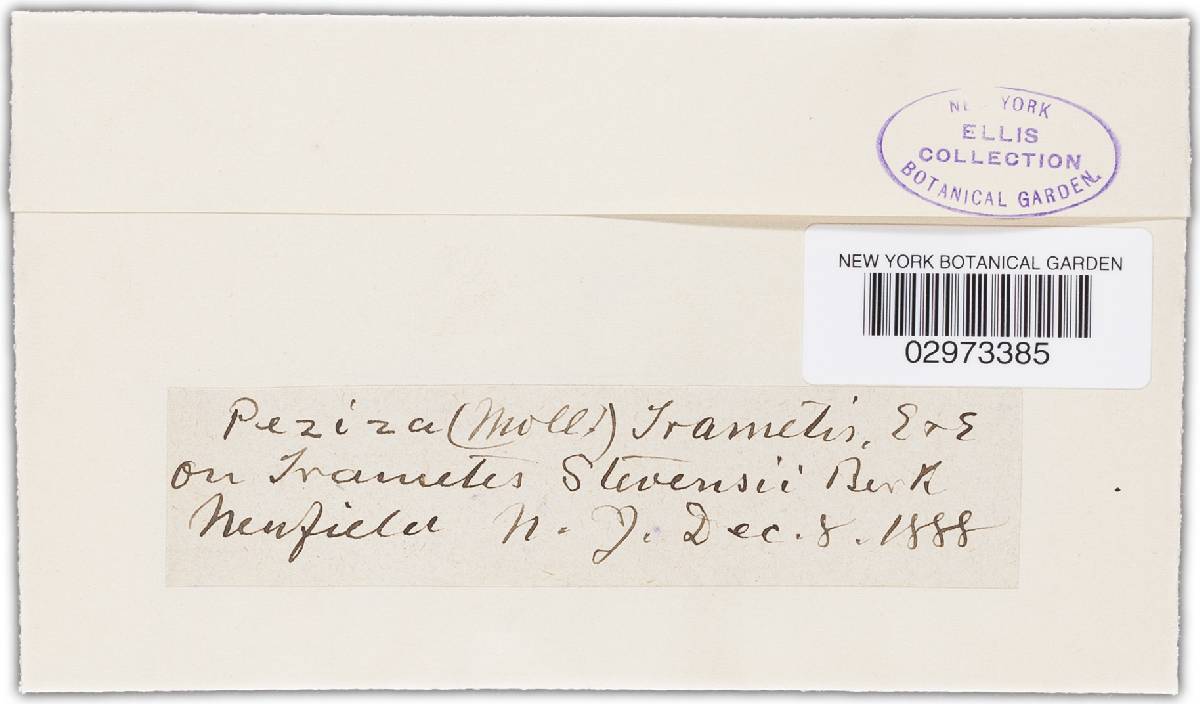 NEW YORK
ELLIS
COLLECTION
BOTANICAL GARDEN.
NEW YORK BOTANICAL GARDEN
02973385
Peziza (Moll.) Trametis, E & E
on Trametes Stevensii Berk
Newfield N. J. Dec. 8. 1888